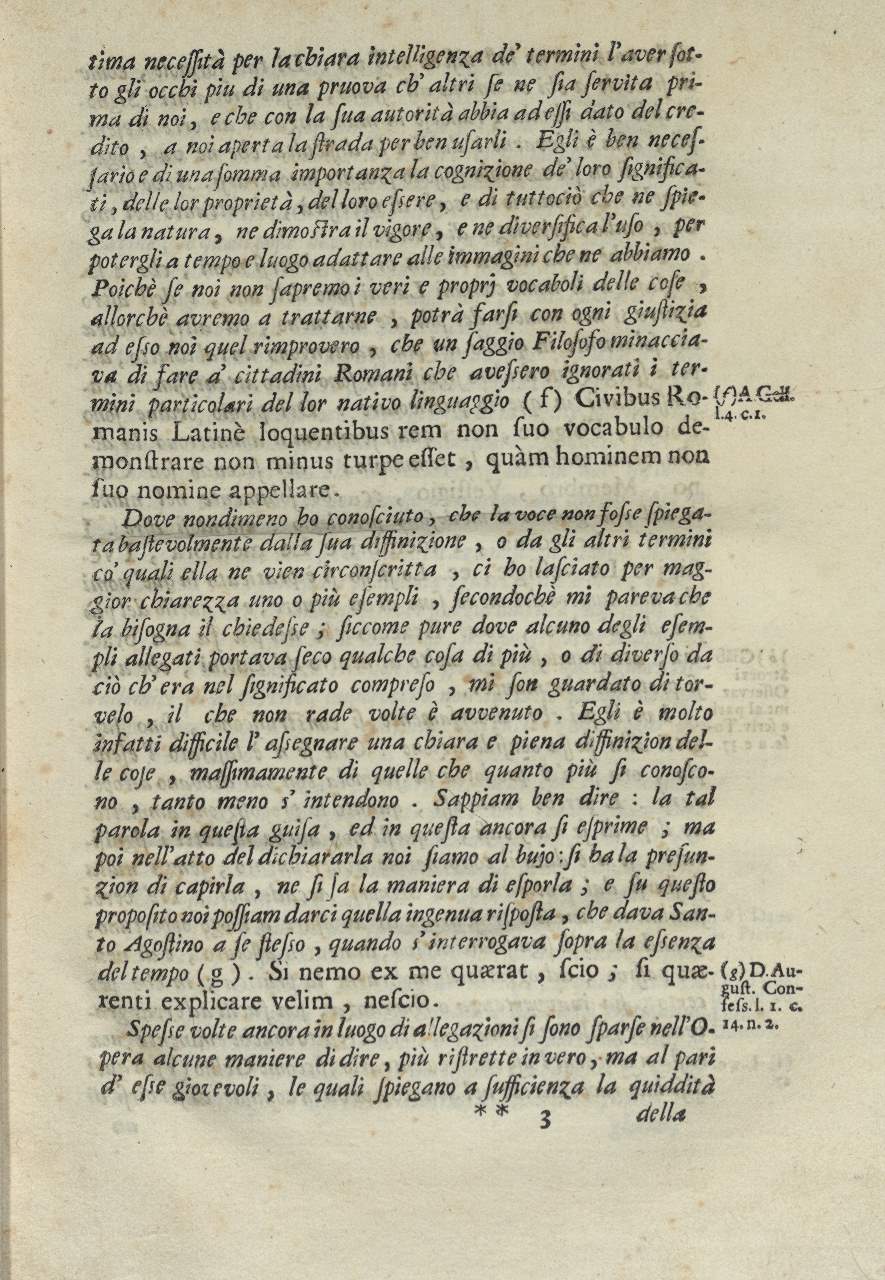 tima neceſſità per la chiara intelligenza de' termini l'aver ſot-
to gli occhi piu di una pruova ch' altri ſe ne ſia ſervita pri-
ma di noi, e che con la ſua autorità abbia ad eſſi dato del cre-
dito , a noi aperta la ſtrada per ben uſarli . Egli è ben neceſ-
ſario e di una ſomma importanza la cognizione de' loro ſignifica-
ti, delle lor proprietà, del loro eſsere, e di tuttociò che ne ſpie-
ga la natura, ne dimoſtra il vigore, e ne diverſifica l'uſo , per
potergli a tempo e luogo adattare alle immagini che ne abbiamo .
Poichè ſe noi non ſapremo i veri e proprj vocaboli delle coſe ,
allorchè avremo a trattarne , potrà farſi con ogni giuſtizia
ad eſso noi quel rimprovero , che un ſaggio Filoſofo minaccia-
va di fare a' cittadini Romani che aveſsero ignorati i ter-
mini particolari del lor nativo linguaggio ( f ) Civibus Ro-
(f) A Gell.
l. 4. c. 1.
manis Latinè loquentibus rem non ſuo vocabulo de-
monſtrare non minus turpe eſſet , quàm hominem non
ſuo nomine appellare.
Dove nondimeno ho conoſciuto, che la voce non foſse ſpiega-
ta baſtevolmente dalla ſua diffinizione , o da gli altri termini
co' quali ella ne vien circonſcritta , ci ho laſciato per mag-
gior chiarezza uno o più eſempli , ſecondochè mi pareva che
la biſogna il chiedeſse ; ſiccome pure dove alcuno degli eſem-
pli allegati portava ſeco qualche coſa di più , o di diverſo da
ciò ch' era nel ſignificato compreſo , mi ſon guardato di tor-
velo , il che non rade volte è avvenuto . Egli è molto
infatti difficile l' aſsegnare una chiara e piena diffinizion del-
le coſe , maſſimamente di quelle che quanto più ſi conoſco-
no , tanto meno s' intendono . Sappiam ben dire : la tal
parola in queſta guiſa , ed in queſta ancora ſi eſprime ; ma
poi nell'atto del dichiararla noi ſiamo al bujo : ſi ha la preſun-
zion di capirla , ne ſi ſa la maniera di eſporla ; e ſu queſto
propoſito noi poſſiam darci quella ingenua riſpoſta , che dava San-
to Agoſtino a ſe ſteſso , quando s'interrogava ſopra la eſsenza
del tempo ( g ) . Si nemo ex me quærat , ſcio ; ſi quæ-
(g) D. Au-
guſt. Con-
feſs. l. 1. c.
14. n. 2.
renti explicare velim , neſcio.
Speſse volte ancora in luogo di allegazioni ſi ſono ſparſe nell' O-
pera alcune maniere di dire , più riſtrette in vero, ma al pari
d' eſse giovevoli , le quali ſpiegano a ſufficienza la quiddità
** 3 della